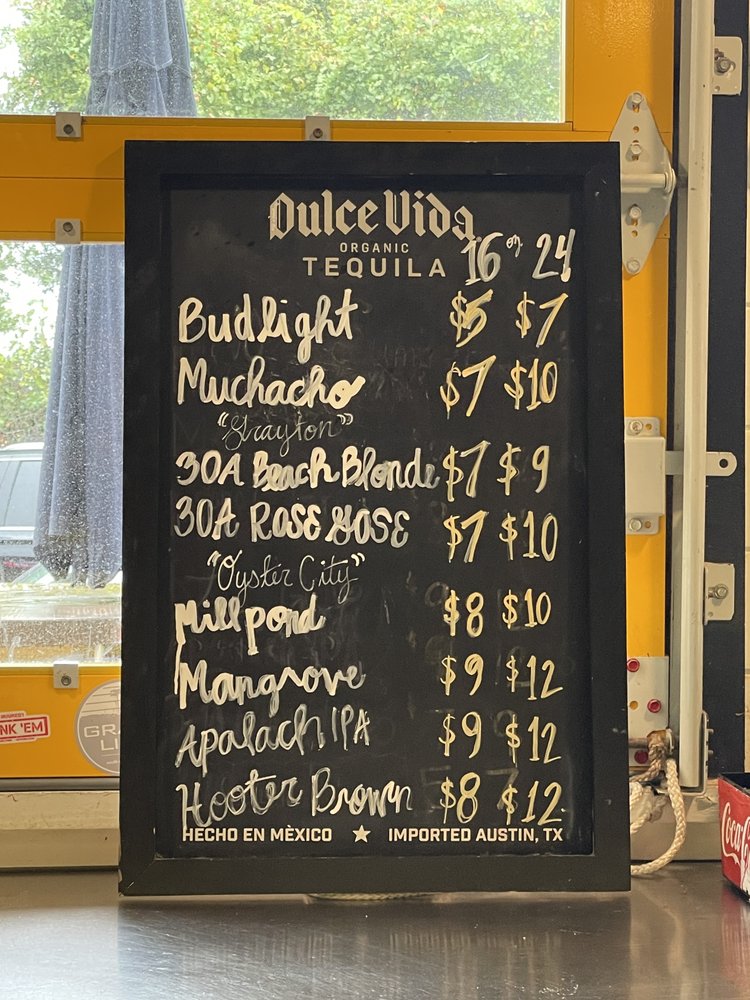 Dulce Vida
ORGANIC
TEQUILA
16 oz 24
Budlight $5 $7
Muchacho $7 $10
"Grayton"
30A Beach Blonde $7 $9
30A ROSE GOSE $7 $10
"Oyster City"
Millpond $8 $10
Mangrove $9 $12
Apalach IPA $9 $12
Hooter Brown $8 $12
HECHO EN MÈXICO ★ IMPORTED AUSTIN, TX
NK 'EM
GRA
LI
Coca